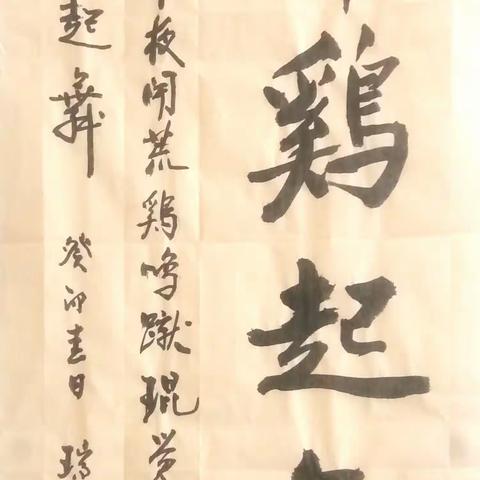 鷄起
夜闻荒鷄鸣蹴琨觉
起舞 癸卯春日